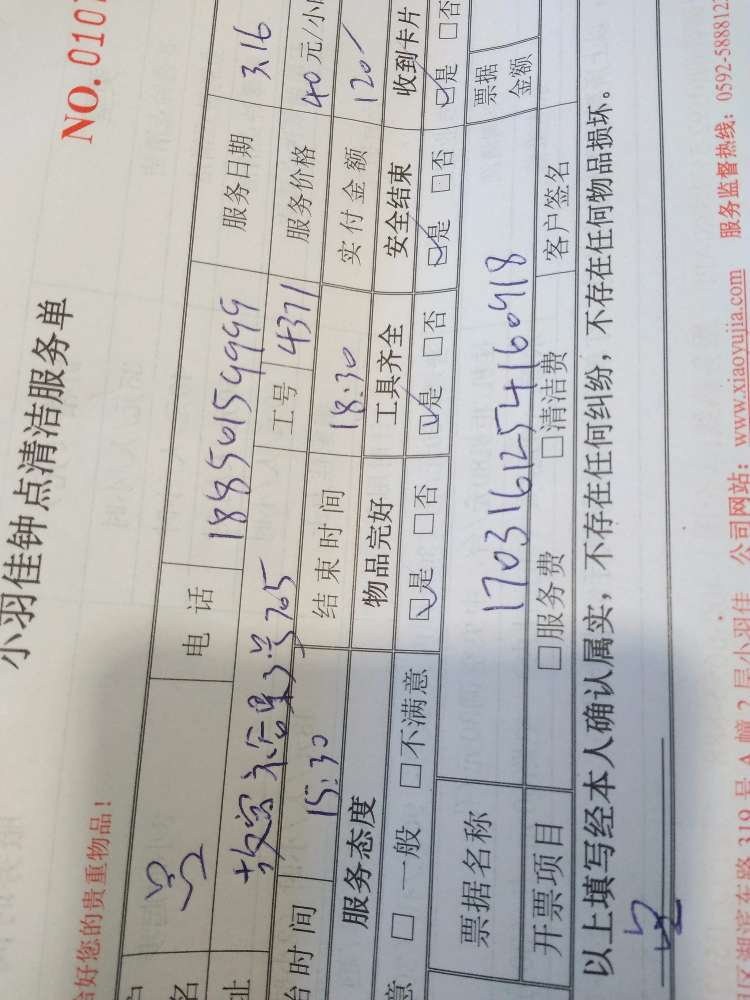 小羽佳钟点清洁服务单
NO.0107
给好您的贵重物品！
户名 吴 电话 18850159999 服务日期 3.16
址 3号705 工号 4371 服务价格 40元/小
台时间 15:30 结束时间 18:30 实付金额 120
服务态度 物品完好 工具齐全 安全结束 收到卡片
意 □一般 □不满意 ☑是 □否 ☑是 □否 ☑是 □否 ☑是 □否
票据名称 1703161254160918 票据金额
开票项目 □服务费 □清洁费 客户签名
以上填写经本人确认属实，不存在任何纠纷，不存在任何物品损坏。
吴
区湖滨东路319号A幢2层小羽佳 公司网站：www.xiaoyujia.com 服务监督热线：0592-5888123